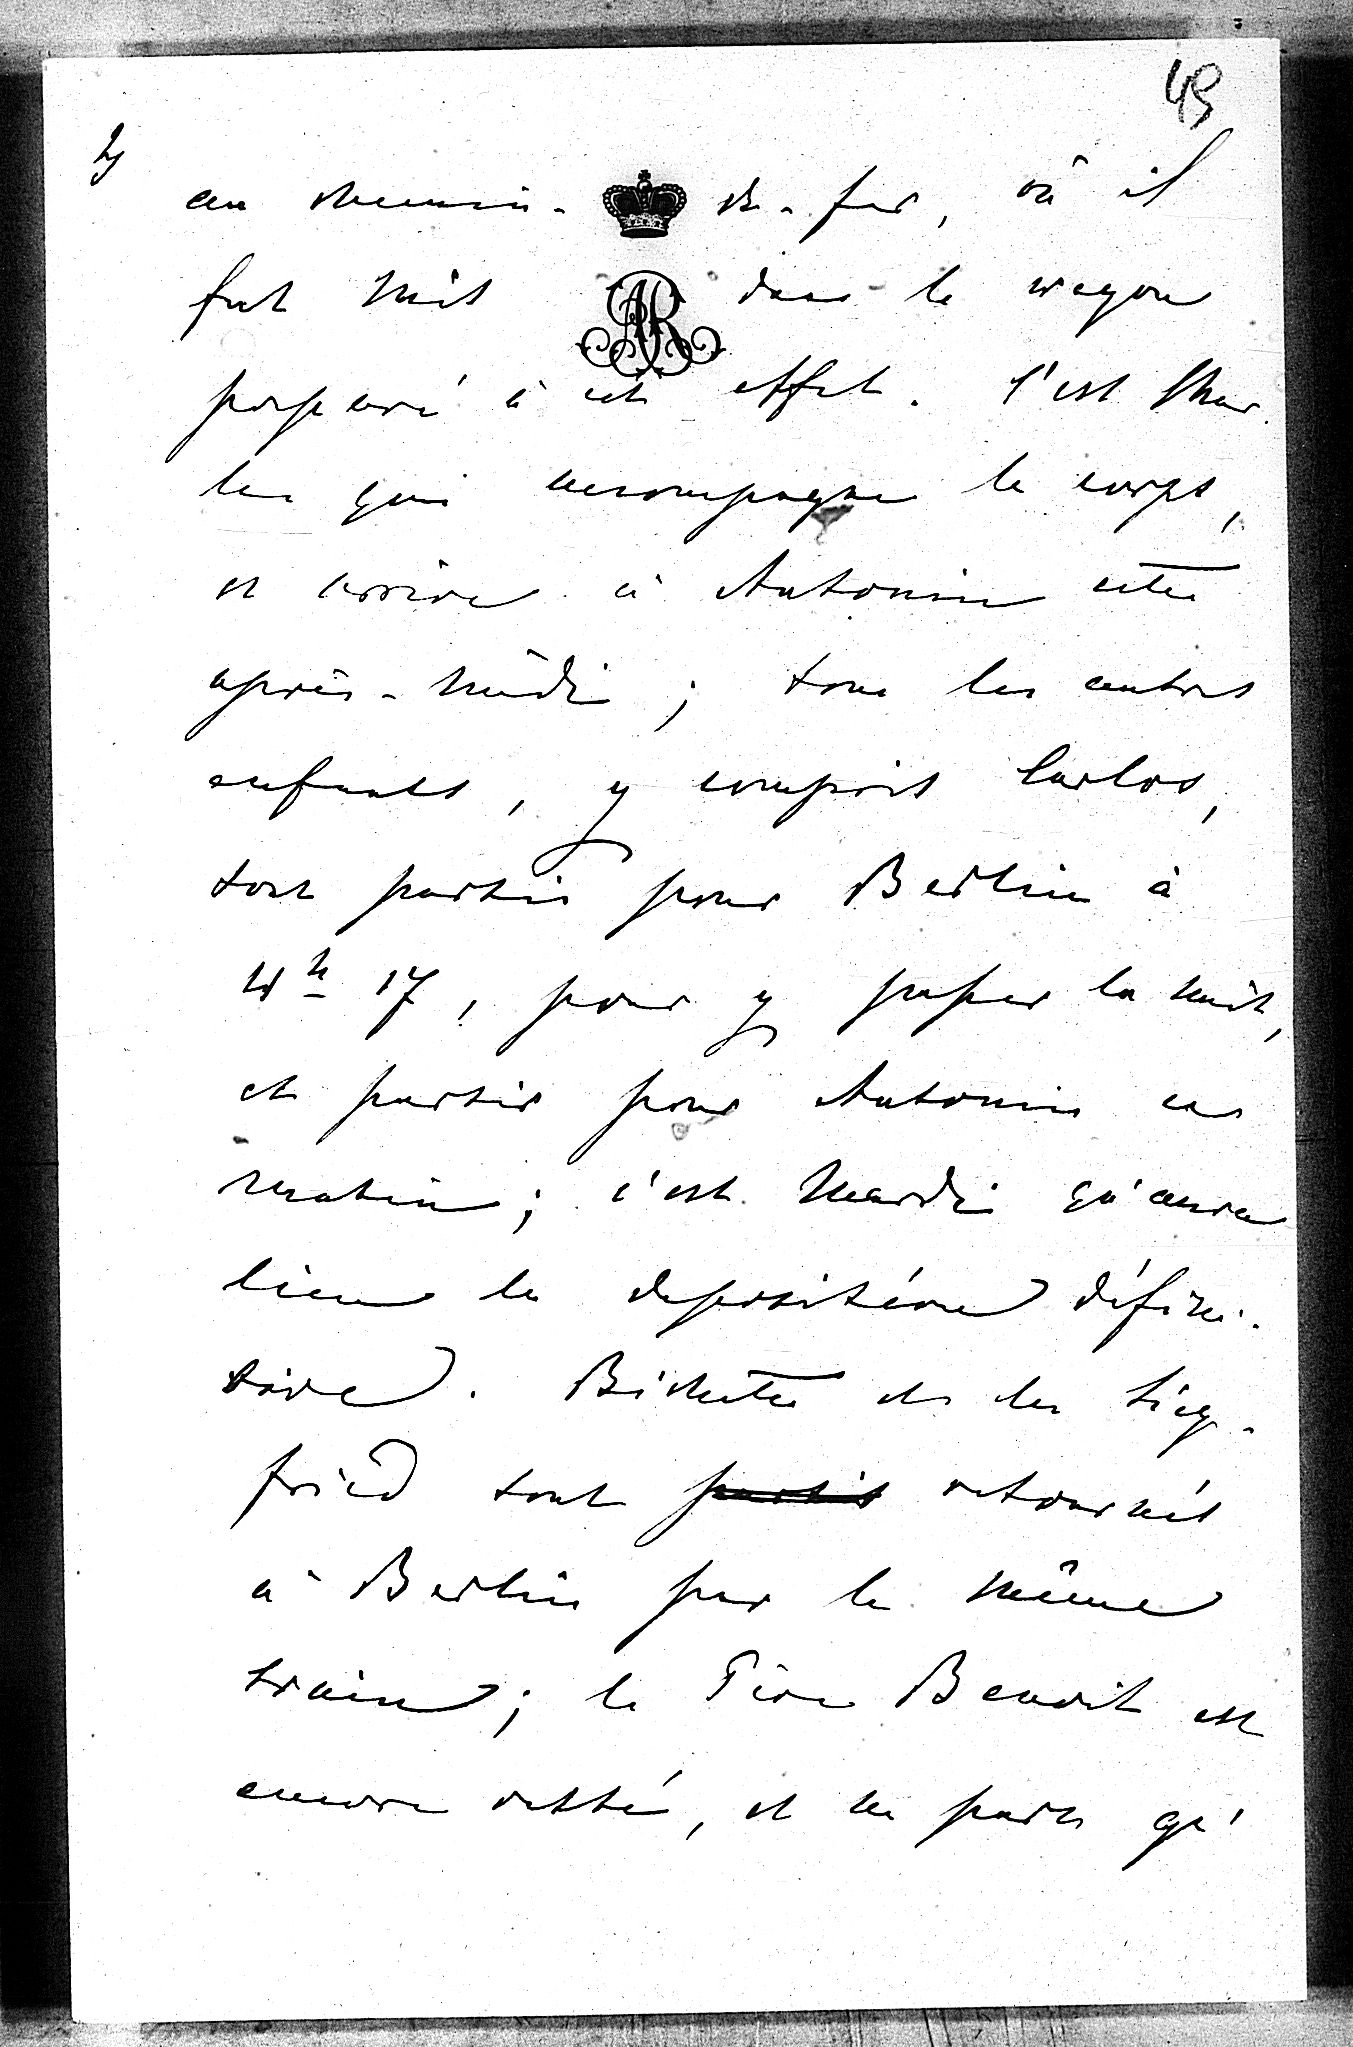 49
2)
au chemin-de-fer, où il
fut mis dans le wagon
préparé à cet effet. C'est Char-
les qui accompagne le corps,
et arrive à Antonin cette
après-midi; tous les autres
enfants, y compris Carlos,
sont partis pour Berlin à
4h 17, pour y passer la nuit,
et partir pour Antonin ce
matin; c'est Mardi qu'aura
lieu la déposition défini-
tive. Bichette et les Sieg-
fried sont partis retournés
à Berlin par le même
train; le Père Benoit est
encore resté, et ne part qu'